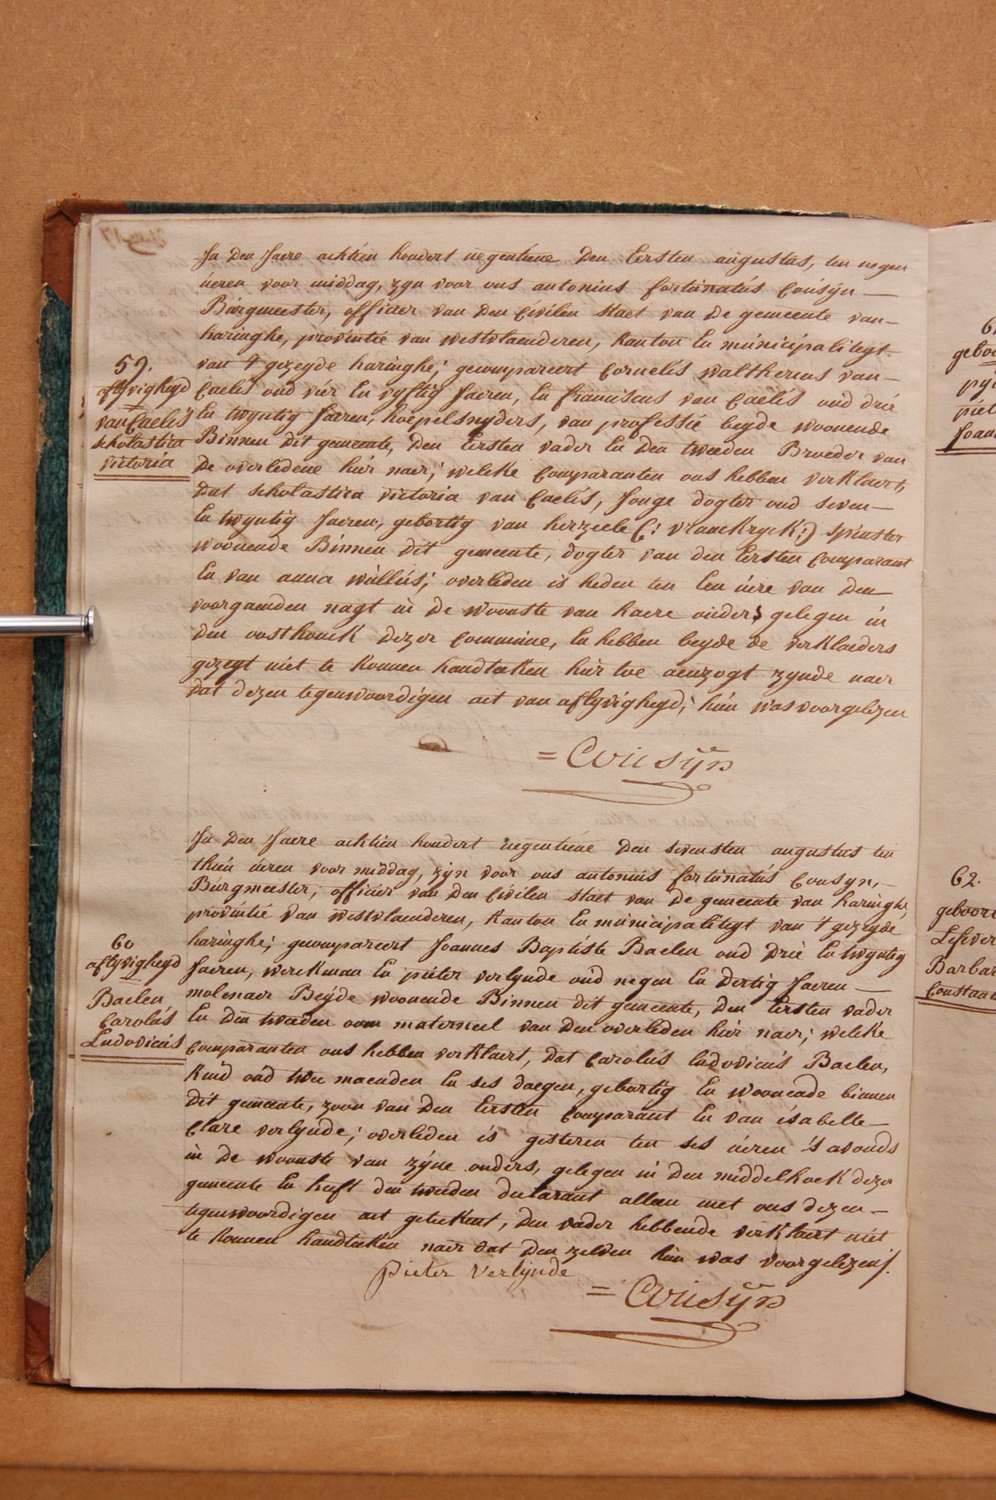 In den Jaere achtien hondert negentiene den Eersten augustus, ten negen
ueren voor middag, zyn voor ons antonius fortunatús Coúsÿn
Búrgmeester, officier van den Civilen Staet van de gemeente van
haringhe, provintie van westvlaenderen, kanton en múnicipalitegt
van 't gezeyde haringhe; gecompareert Cornelis waltherus van
59.
aflyvigheyd
van Caelis
scholastica
victoria
Caelis oud vier en vyftig Jaeren, en franciscus van Caelis oud drie
en twyntig Jaeren, koopelsnyders, van professie beyde woonende
Binnen dit gemeente, den Eersten vader en den tweeden Broeder van
de overledene hier naer; welcke Comparanten ons hebben verklaert,
dat scholastica victoria van Caelis, Jonge dogter oud seven
en twyntig Jaeren, gebortig van herzeele (: vranckryck:) spinster
woonende Binnen dit gemeente, dogter van den Eersten Comparant
en van anna willús; overleden is heden ten een úere van den
voorgaenden nagt in de woonste van haere ouders gelegen in
den oosthouck dezer Commúne, en hebben beyde de verklaeders
gezegt niet te konnen handtéeken hier toe aenzogt zynde naer
dat dezen tegenwoordigen act van aflyvigheyd; hún was voorgelezen
= Coúsÿn
In den Jaere achtien hondert negentiene den sevensten augustus ten
thien úeren voor middag, zyn voor ons antonius fortúnatús Cousyn,
Búrgmeester, officier van den Civilen Staet van de gemeente van haringhe,
provintie van westvlaenderen, kanton en municipalitegt van 't gezeyde
60
aflyvigheyd
Baelen
Carolús
Ludovicús
haringhe; gecompareert Joannes Baptiste Baelen oud drie en twyntig
Jaeren, werckman en pieter verlynde oúd negen en dertig Jaeren
molenaer Beÿde woonende Binnen dit gemeente, den Eersten vader
en den tweeden oom materneel van den overleden hier naer; welcke
Comparanten ons hebben verklaert, dat Carolús lúdovicús Baelen,
kind oúd twee maenden en ses daegen, gebortig en woonende binnen
dit gemeente, zoon van den Eersten Comparant en van isabelle
Clare verlynde; overleden is gisteren ten ses úeren 's avonds
in de woonste van zÿne ouders, gelegen in den middelhoek dezer
gemeente en heeft den tweeden declarant alleen met ons dezen
tegenwoordigen act geteekent, den vader hebbende verklaert niet
te konnen handtéeken naer dat den zelven hún was voorgelezen/.
pieter verlynde
= Coúsÿn
62.
geboort
Lefever
Barbar
Constant